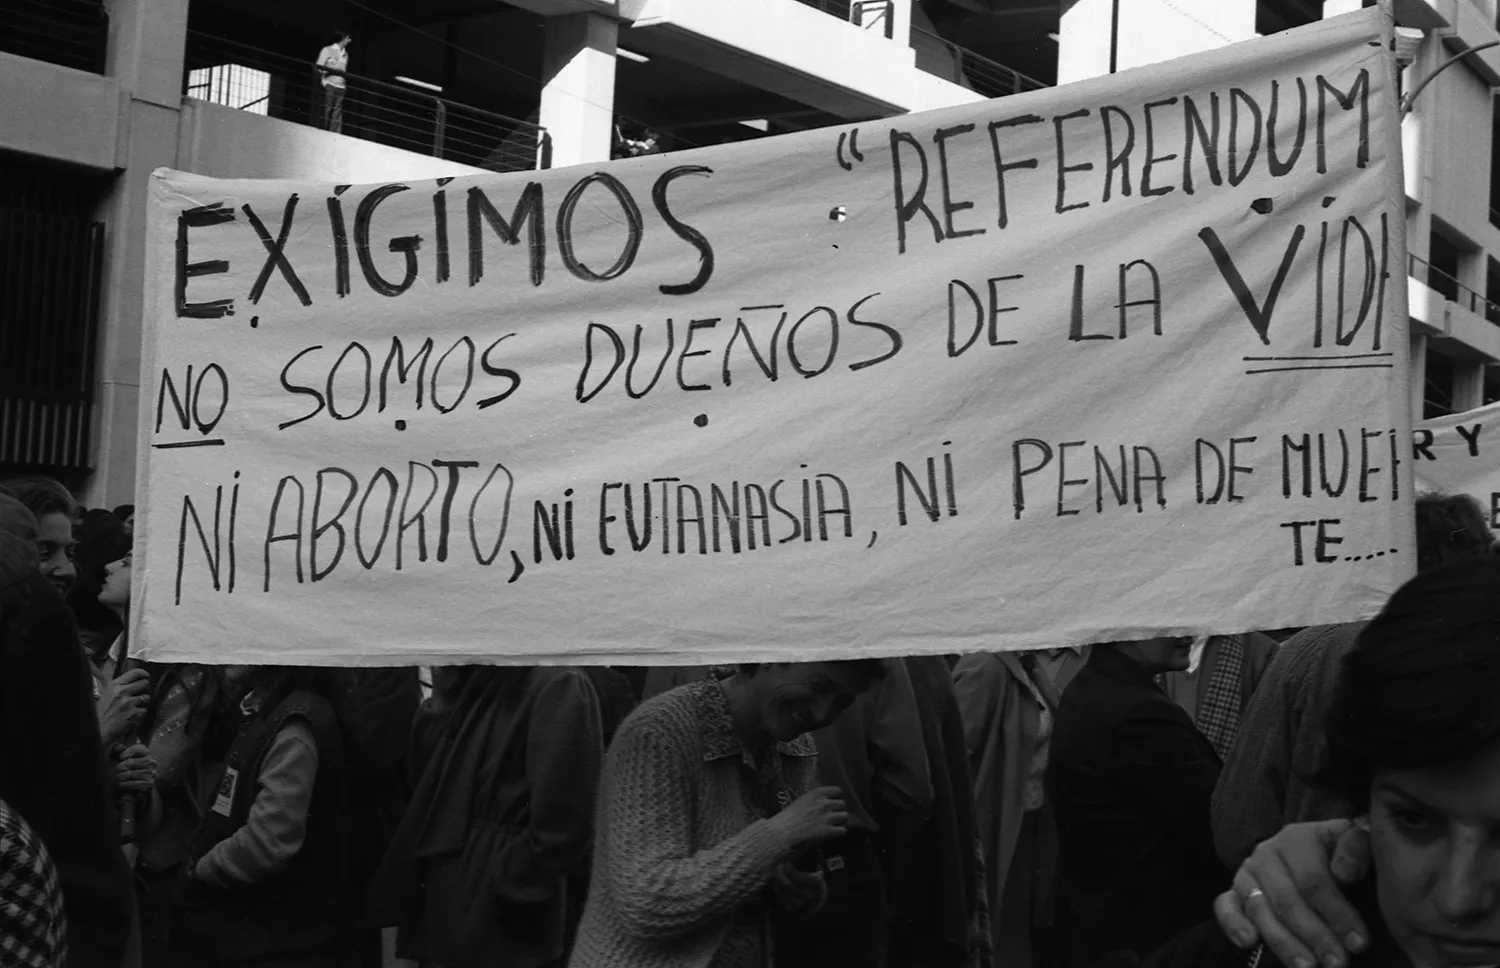 EXiGiMOS “REFERENDUM
NO SOMOS DUEÑOS DE LA ViDA
Ni ABORTO, Ni EUTANASiA, Ni PENA DE MUER
TE.....
R Y